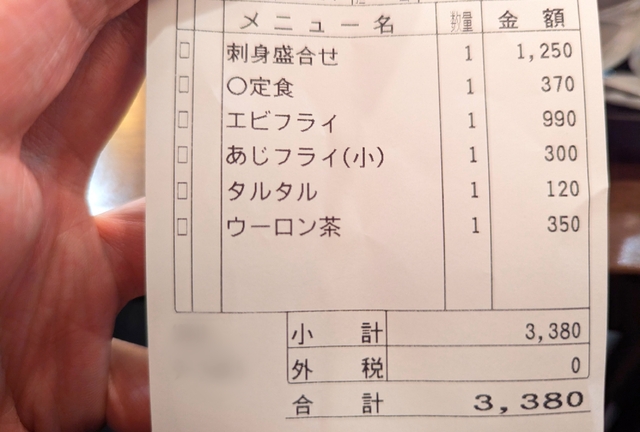 メニュー名 数量 金額
刺身盛合せ 1 1,250
〇定食 1 370
エビフライ 1 990
あじフライ(小) 1 300
タルタル 1 120
ウーロン茶 1 350
小計 3,380
外税 0
合計 3,380